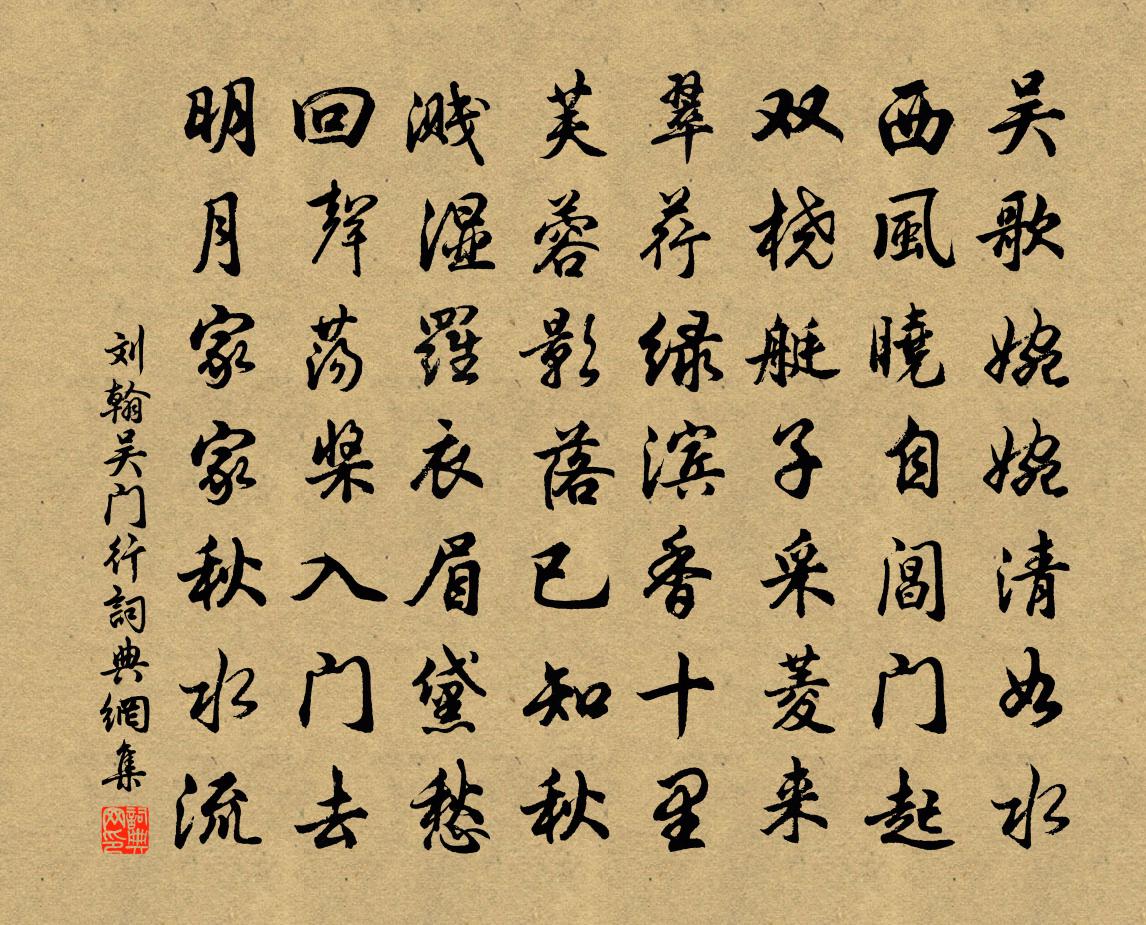 吴歌婉婉清如水
西風曉自閶门起
双桡艇子采菱来
翠荇绿滨香十里
芙蓉影落已知秋
溅湿羅衣眉黛愁
回聲荡桨入门去
明月家家秋水流
刘翰吴门行詞典網集
詞典网印